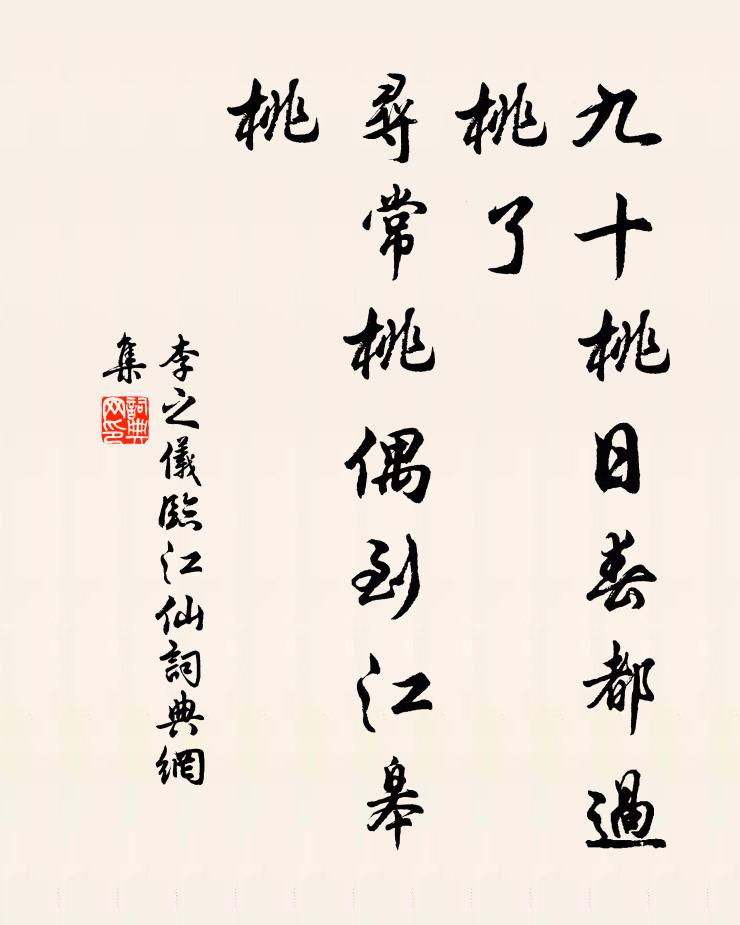 九十桃日春都過
桃了
尋常桃偶到江皋
桃
李之儀臨江仙詞典網
集
詞典網印